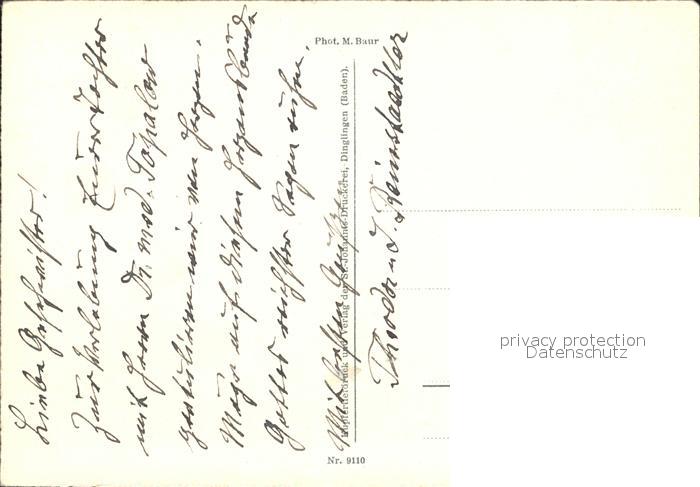 Liebe Geschwister!
Zur Verlobung Eurer Tochter
mit Herrn Dr. med. Topalow
gratulieren wir von Herzen.
Möge auf diesem Herzensbunde
Gottes reichster Segen ruhen.
Mit besten Grüßen
Theodor u. L.
Phot. M. Baur
Kupfertiefdruck und Verlag der St.-Johannis-Druckerei, Dinglingen (Baden).
Nr. 9110
privacy protection
Datenschutz